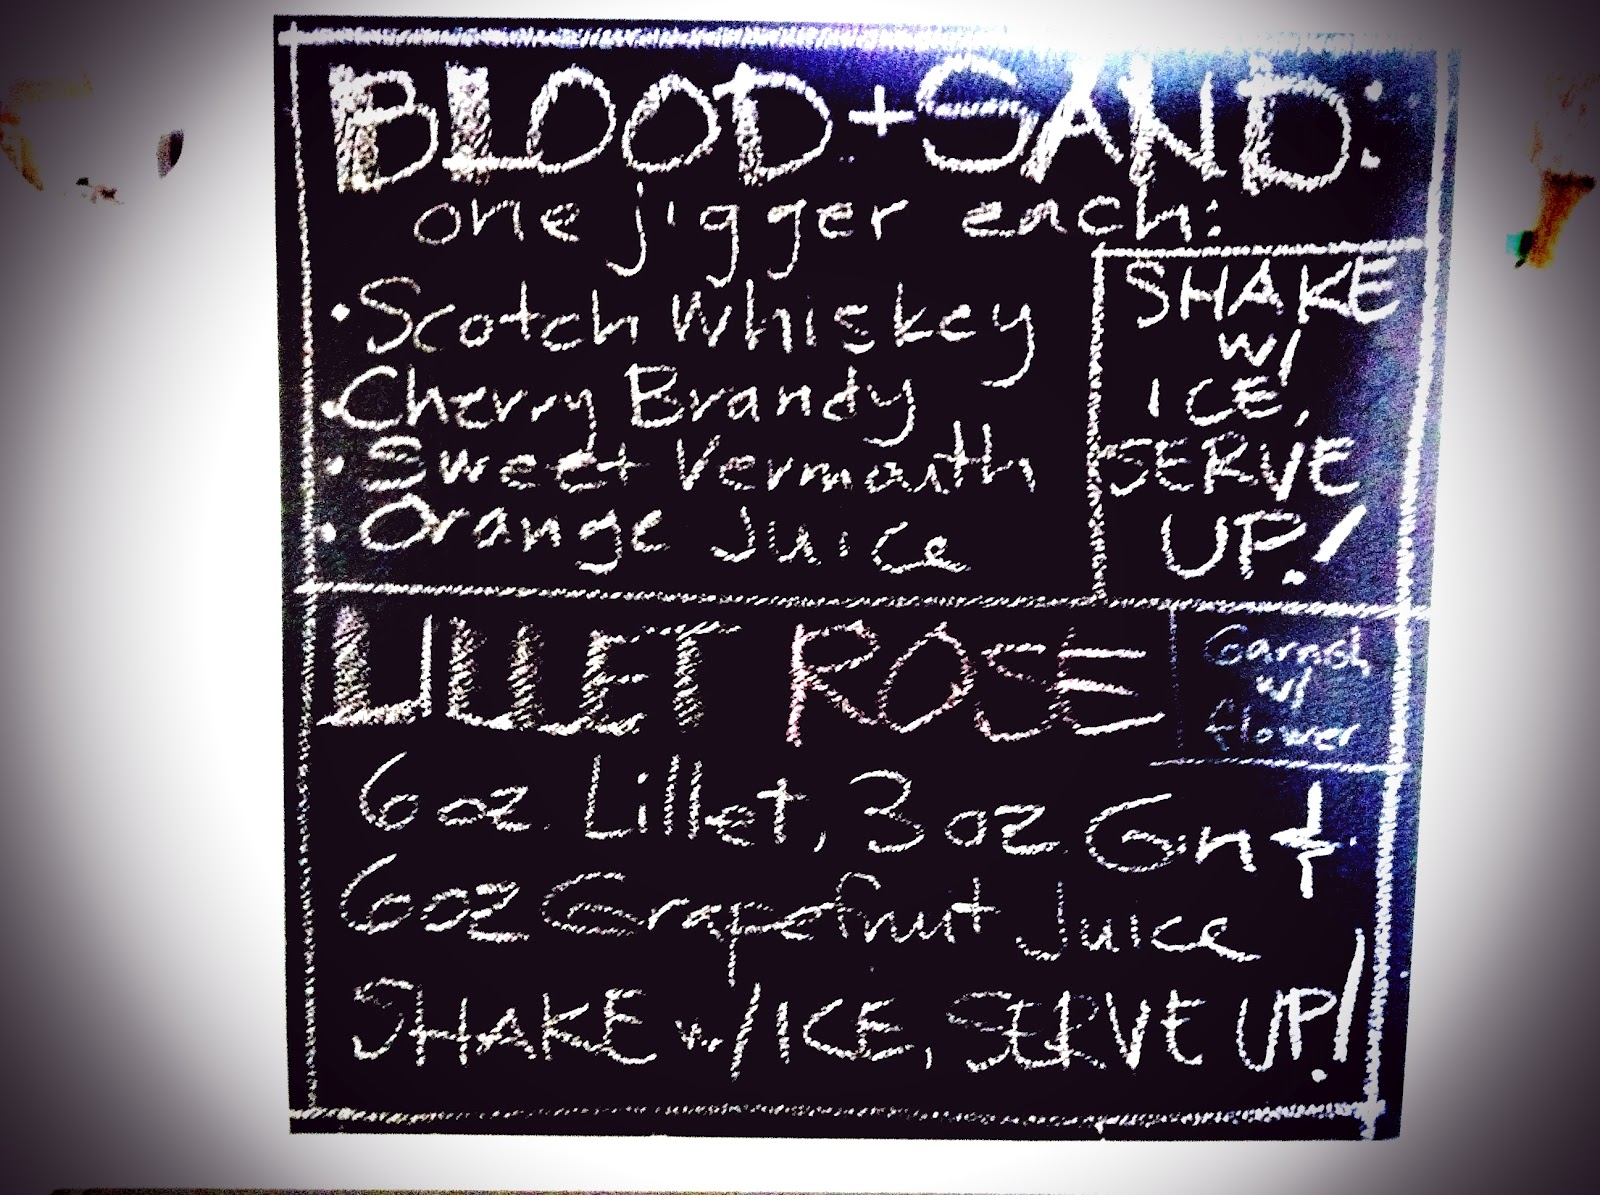 BLOOD + SAND:
one jigger each:
• Scotch Whiskey
• Cherry Brandy
• Sweet Vermouth
• Orange Juice
SHAKE
w/
ICE,
SERVE
UP!
LILLET ROSE
Garnish
w/
flower
6 oz Lillet, 3 oz Gin &
6oz Grapefruit Juice
SHAKE w/ ICE, SERVE UP!